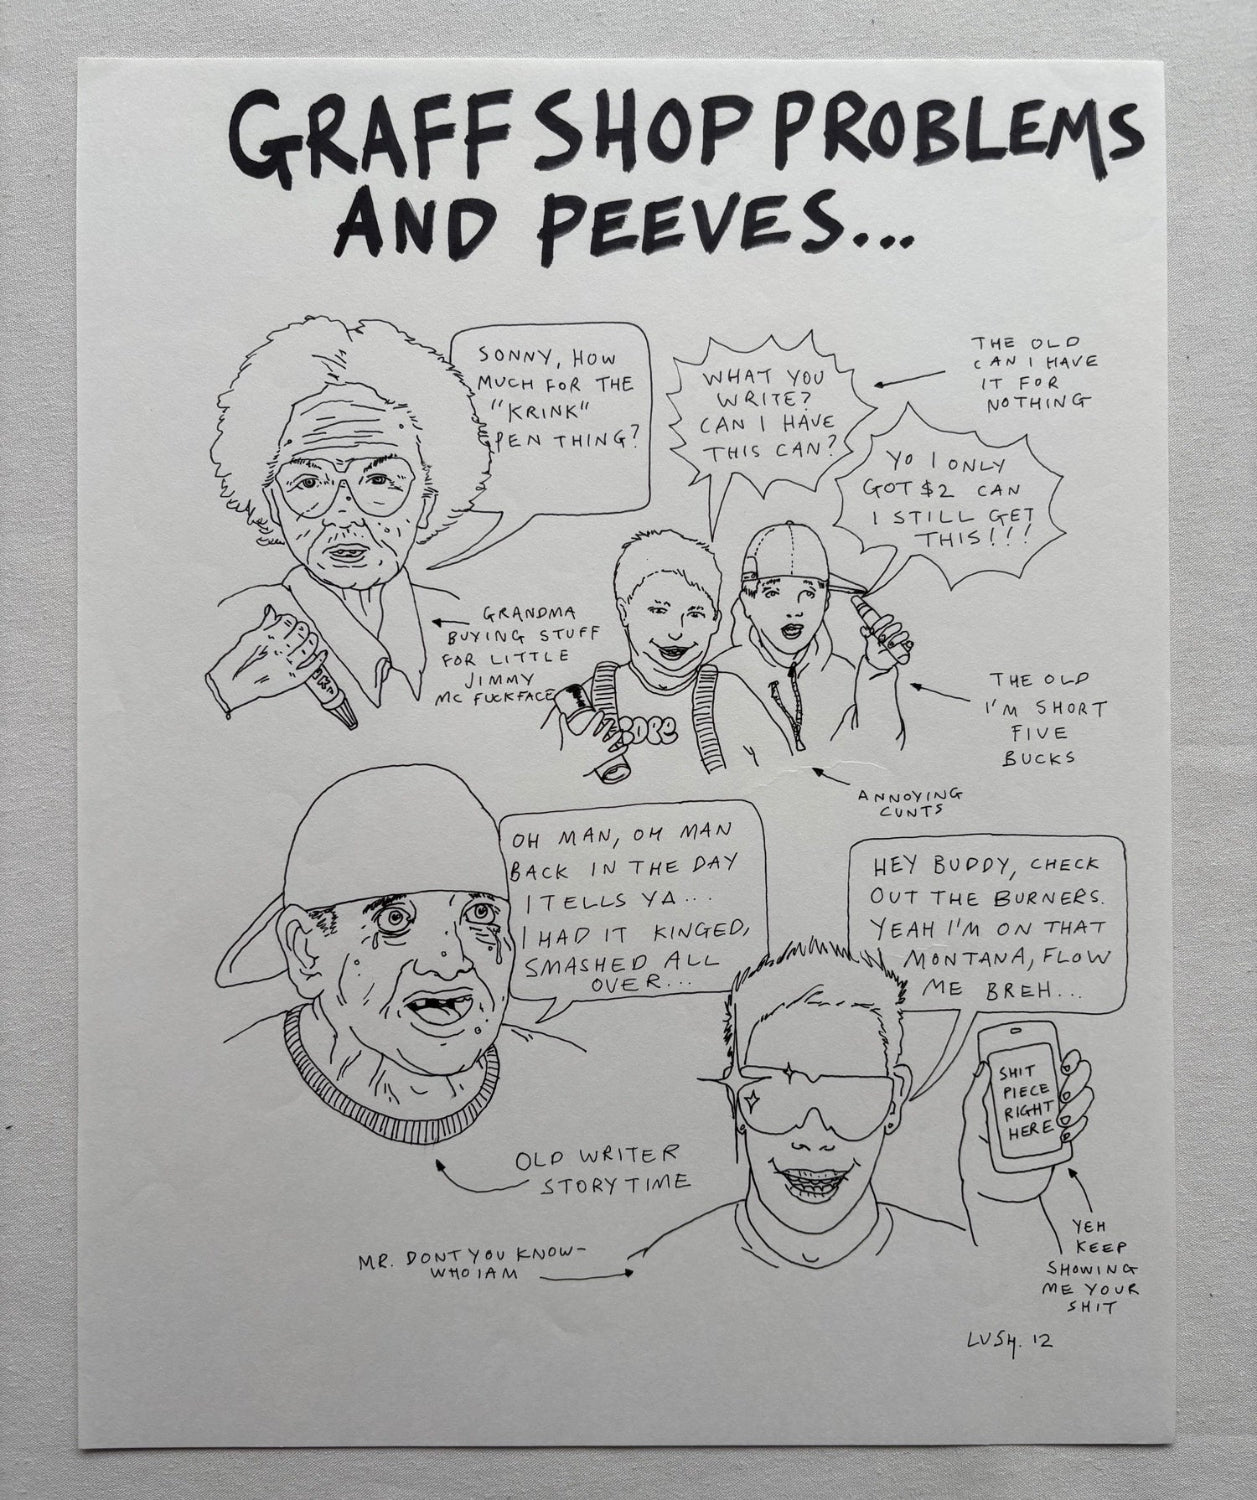 GRAFF SHOP PROBLEMS
AND PEEVES...
SONNY, HOW
MUCH FOR THE
"KRINK"
PEN THING?
GRANDMA
BUYING STUFF
FOR LITTLE
JIMMY
MC FUCKFACE
WHAT YOU
WRITE?
CAN I HAVE
THIS CAN?
THE OLD
CAN I HAVE
IT FOR
NOTHING
YO I ONLY
GOT $2 CAN
I STILL GET
THIS!!!
THE OLD
I'M SHORT
FIVE
BUCKS
ANNOYING
CUNTS
OH MAN, OH MAN
BACK IN THE DAY
I TELLS YA...
I HAD IT KINGED,
SMASHED ALL
OVER...
OLD WRITER
STORYTIME
HEY BUDDY, CHECK
OUT THE BURNERS.
YEAH I'M ON THAT
MONTANA, FLOW
ME BREH...
SHIT
PIECE
RIGHT
HERE
MR. DONT YOU KNOW-
WHO I AM
YEH
KEEP
SHOWING
ME YOUR
SHIT
LUSH. 12